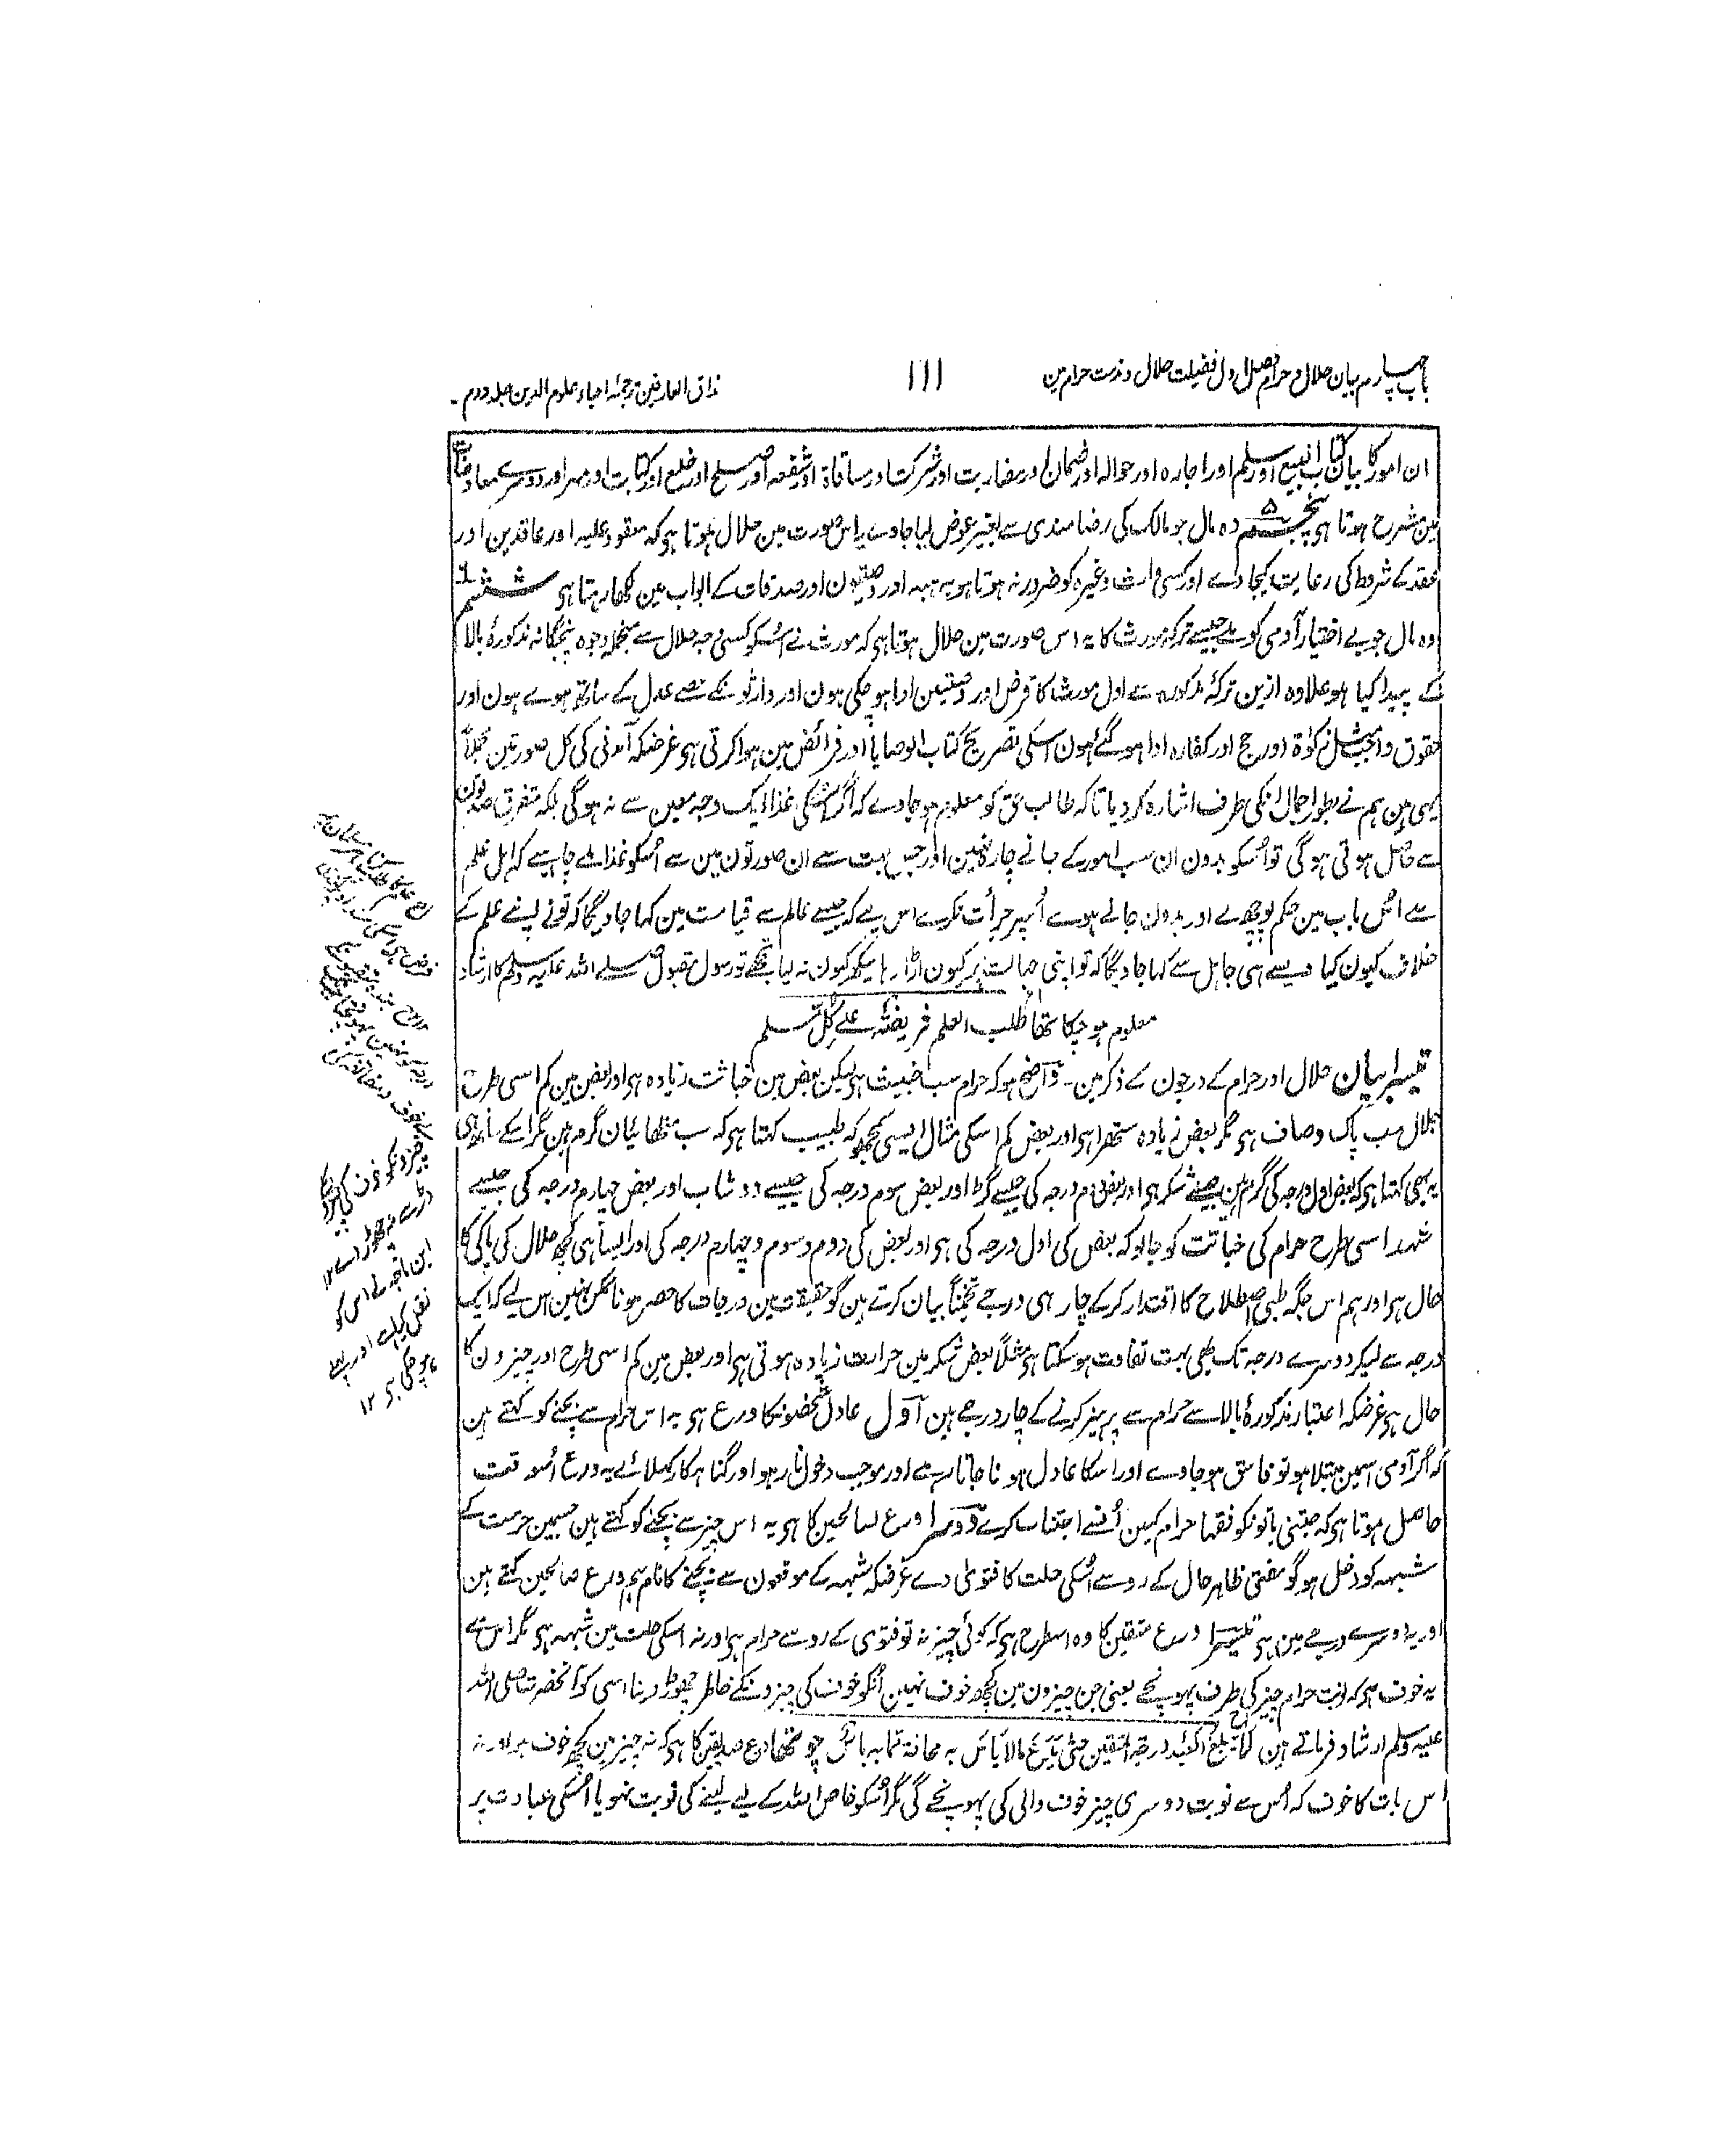 باب چہارم بیان حلال و حرام فصل اول فضیلت حلال و مذمت حرام مین
۱۱۱
مذاق العارفین ترجمۂ احیاء علوم الدین جلد دوم ۔
ان امور کا بیان کتاب البیع اور سلم اور اجارہ اور حوالہ اور ضمان اور مضاربت اور شرکت اور مساقاۃ اور شفعہ اور صلح اور خلع اور کتابت اور مہر اور دوسرے معاوضات
مین مشرح ہوتا ہی پنجم وہ مال جو مالک کی رضامندی سے بغیر عوض لیا جاوے یہ اس صورت مین حلال ہوتا ہی کہ معقود علیہ اور عاقدین اور
عقد کے شروط کی رعایت کیجاوے اور کسی وارث وغیرہ کو ضرر نہ ہوتا ہو یہ ہبہ اور وصیتون اور صدقات کے ابواب مین لکھا رہتا ہی ششم
وہ مال جو بے اختیار آدمی کو ملے جیسے ترکہ مورث کا یہ اس صورت مین حلال ہوتا ہی کہ مورث نے اُسکو کسی وجہ حلال سے منجملہ وجوہ پنجگانہ مذکورۂ بالا
کے پیدا کیا ہو علاوہ ازین ترکۂ مذکورہ سے اول مورث کا قرض اور وصیتین ادا ہو چکی ہون اور وارثونکے حصے عدل کے ساتھ ہوے ہون اور
حقوق واجب مثل زکوٰۃ اور حج اور کفارہ ادا ہو گئے ہون اسکی تصریح کتاب الوصایا اور فرائض مین ہوا کرتی ہی غرضکہ آمدنی کی کل صورتین مجملاً
یہی ہین ہم نے بطور اجمال انکی طرف اشارہ کر دیا تاکہ طالب حق کو معلوم ہو جاوے کہ اگر اُسکی غذا ایک وجہ معین سے نہ ہوگی بلکہ متفرق صورتون
سے حاصل ہوتی ہوگی تو اُسکو بدون ان سب امور کے جانے چارہ نہین اور جس جہت سے ان صورتون مین سے اُسکو غذا ملے چاہیے کہ اہل علم
سے اُس باب مین حکم پوچھ لے اور بدون جانے ہوے اُسپر جرأت نکرے اس لیے کہ جیسے عالم سے قیامت مین کہا جاویگا کہ تونے اپنے علم کے
خلاف کیون کیا ویسے ہی جاہل سے کہا جاویگا کہ تو اپنی جہالت پر کیون اڑا رہا سیکھ کیون نہ لیا تجھے تو رسول مقبول صلے اللہ علیہ وسلم کا ارشاد
معلوم ہو چکا تھا طلب العلم فریضۃ علے کل مسلم
تیسرا بیان حلال اور حرام کے درجون کے ذکر مین ۔ واضح ہو کہ حرام سب خبیث ہی لیکن بعض مین خباثت زیادہ ہی اور بعض مین کم اسی طرح
حلال سب پاک و صاف ہی مگر بعض زیادہ ستھرا ہی اور بعض کم اسکی مثال ایسی سمجھو کہ طبیب کہتا ہی کہ سب مٹھائیان گرم ہین مگر اسکے ساتھ ہی
یہ بھی کہتا ہی کہ بعض اول درجہ کی گرم ہین جیسے شکر ہی اور بعض دوم درجہ کی جیسے گڑ اور بعض سوم درجہ کی جیسے دوشاب اور بعض چہارم درجہ کی جیسے
شہد اسی طرح حرام کی خباثت کو جانو کہ بعض کی اول درجہ کی ہی اور بعض کی دوم و سوم و چہارم درجہ کی اور ایسا ہی کچھ حلال کی پاکی کا
حال ہی اور ہم اس جگہ طبی اصطلاح کا اقتدار کرکے چار ہی درجے تخمیناً بیان کرتے ہین گو حقیقت مین درجات کا حصر ہونا ممکن نہین اس لیے کہ ایک
درجہ سے لیکر دوسرے درجہ تک بھی بہت تفاوت ہو سکتا ہی مثلاً بعض شکر مین حرارت زیادہ ہوتی ہی اور بعض مین کم اسی طرح اور چیزون کا
حال ہی غرضکہ اعتبار مذکورۂ بالا سے حرام سے پرہیز کرنے کے چار درجے ہین اول عادل شخصونکا ورع ہی یہ اُس حرام سے بچنے کو کہتے ہین
کہ اگر آدمی اسمین مبتلا ہو تو فاسق ہو جاوے اور اسکا عادل ہونا جاتا رہے اور موجب دخول نار ہو اور گناہگار کہلائے یہ ورع اُسوقت
حاصل ہوتا ہی کہ جتنی باتونکو فقہا حرام کہین اُنسے اجتناب کرے دوسرا ورع صالحین کا ہی یہ اس چیز سے بچنے کو کہتے ہین جسمین حرمت کے
شبہہ کو دخل ہو گو مفتی ظاہر حال کے رو سے اُسکی حلت کا فتویٰ دے غرضکہ شبہہ کے موقعون سے بچنے کا نام ہم ورع صالحین کہتے ہین
اور یہ دوسرے درجے مین ہی تیسرا ورع متقین کا وہ اسطرح ہی کہ کوئی چیز نہ تو فتوی کے رو سے حرام ہی اور نہ اسکی حلت مین شبہہ ہی مگر اُس سے
یہ خوف ہی کہ نوبت حرام چیز کی طرف پہونچے یعنی جن چیزون مین کچھ خوف نہین اُنکو خوف کی چیزونکے خاطر چھوڑ دینا اسی کو آنحضرت صلی اللہ
علیہ وسلم ارشاد فرماتے ہین لا یبلغ العبد درجۃ المتقین حتی یدع ما لا باس بہ مخافۃ مما بہ باس چوتھا ورع صدیقین کا ہی کہ نہ چیز مین کچھ خوف ہو اور نہ
اس بات کا خوف کہ اُس سے نوبت دوسری چیز خوف والی کی پہونچے گی مگر اُسکو خاص اللہ کے لیے لینے کی نوبت نہو یا اُسکی عبادت پر
ابن ماجہ نے اس کو
نقل کیا ہے اور پہلے
ہو چکی ہی ۱۲